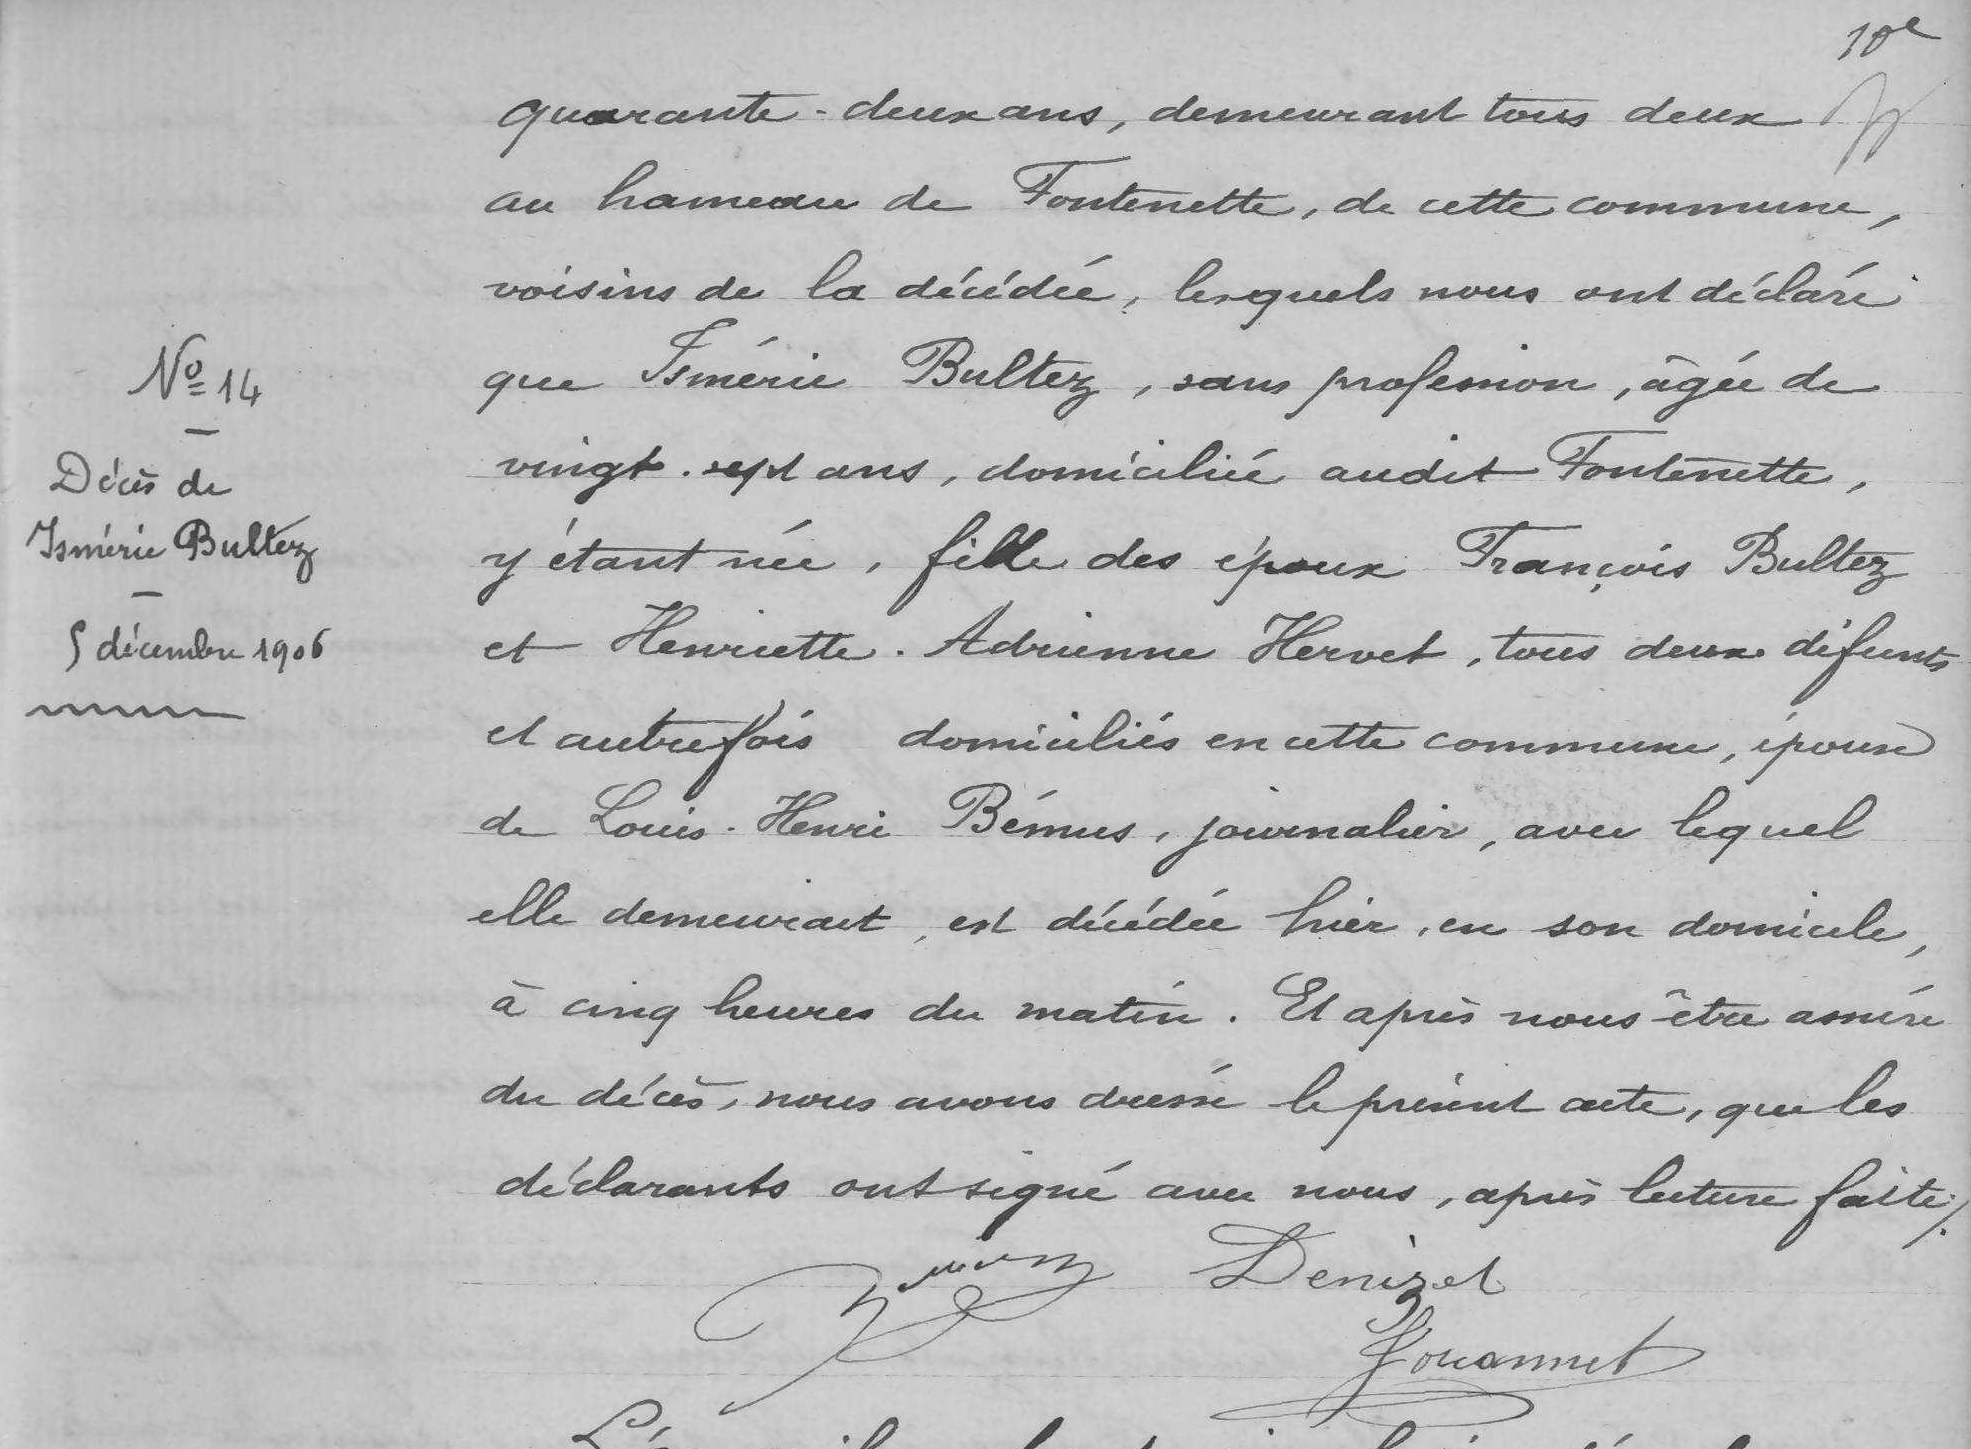 10e
quarante-deux ans, demeurant tous deux
au hameau de Fontenette, de cette commune,
voisins de la décédée, lesquels nous ont déclaré
que Ismérie Bultez, sans profession, âgée de
vingt-sept ans, domiciliée audit Fontenette,
y étant née, fille des époux François Bultez
et Henriette-Adrienne Hervet, tous deux défunts
et autrefois domiciliés en cette commune, épouse
de Louis-Henri Bémus, journalier, avec lequel
elle demeurait, est décédée hier, en son domicile,
à cinq heures du matin. Et après nous être assuré
du décès, nous avons dressé le présent acte, que les
déclarants ont signé avec nous, après lecture faite./.
Denizet
Jouannet
No 14
Décès de
Ismérie Bultez
5 décembre 1906